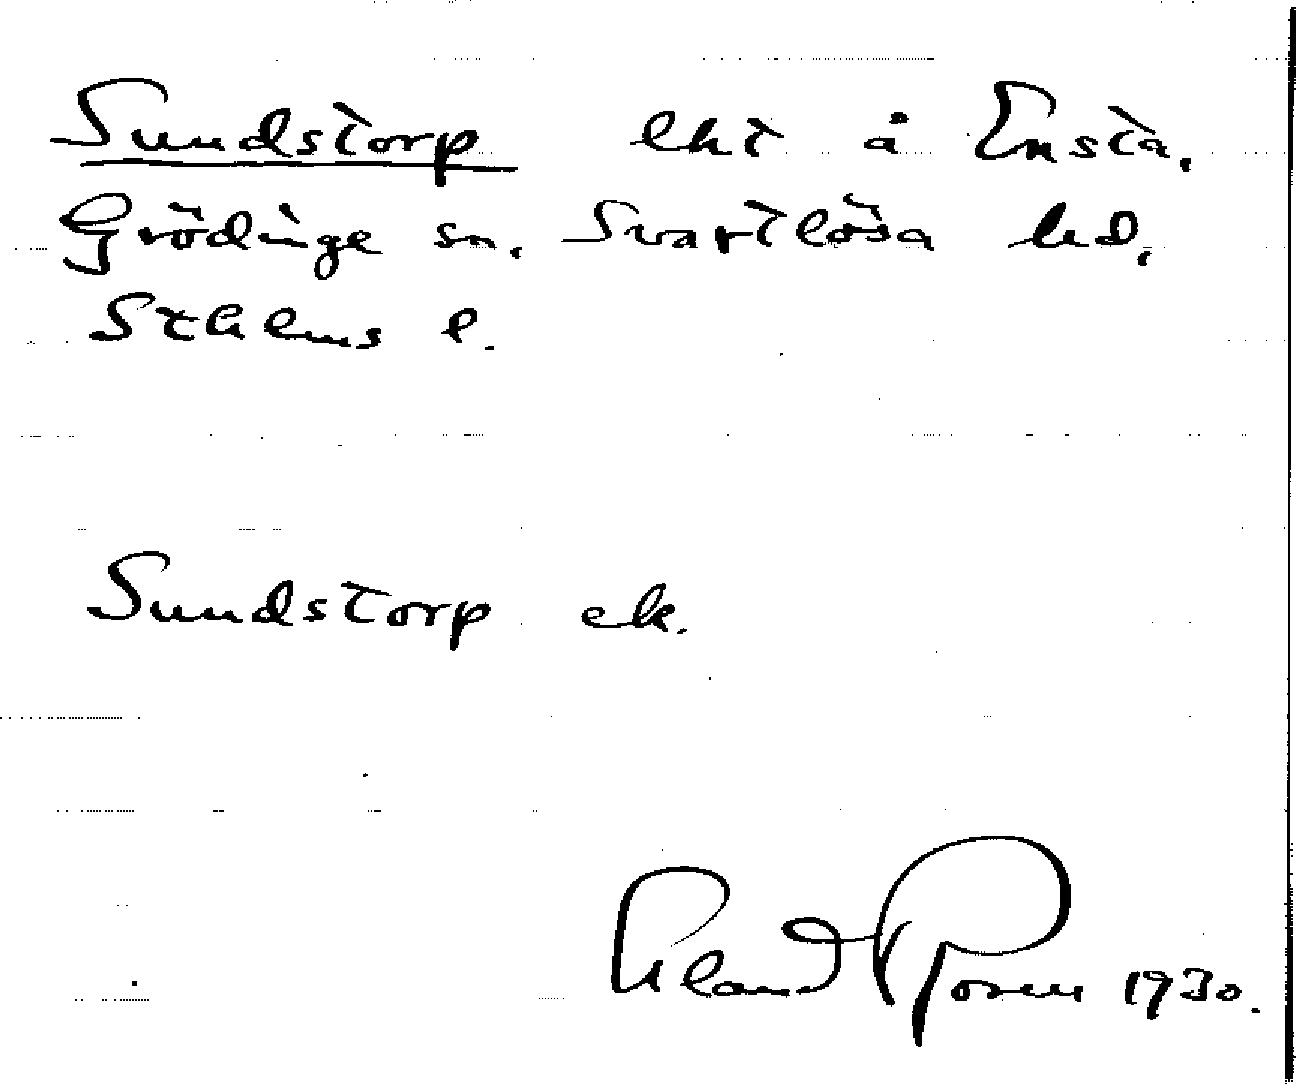 Sundstorp lht å Ensta,
Grödinge sn. Svartlösa hd,
Sthlms l.
Sundstorp ek.
Rosen 1930.